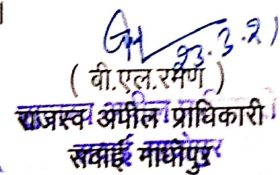 23.3.21
( वी.एल.रमण )
राजस्व अपील प्राधिकारी
सवाई माधोपुर